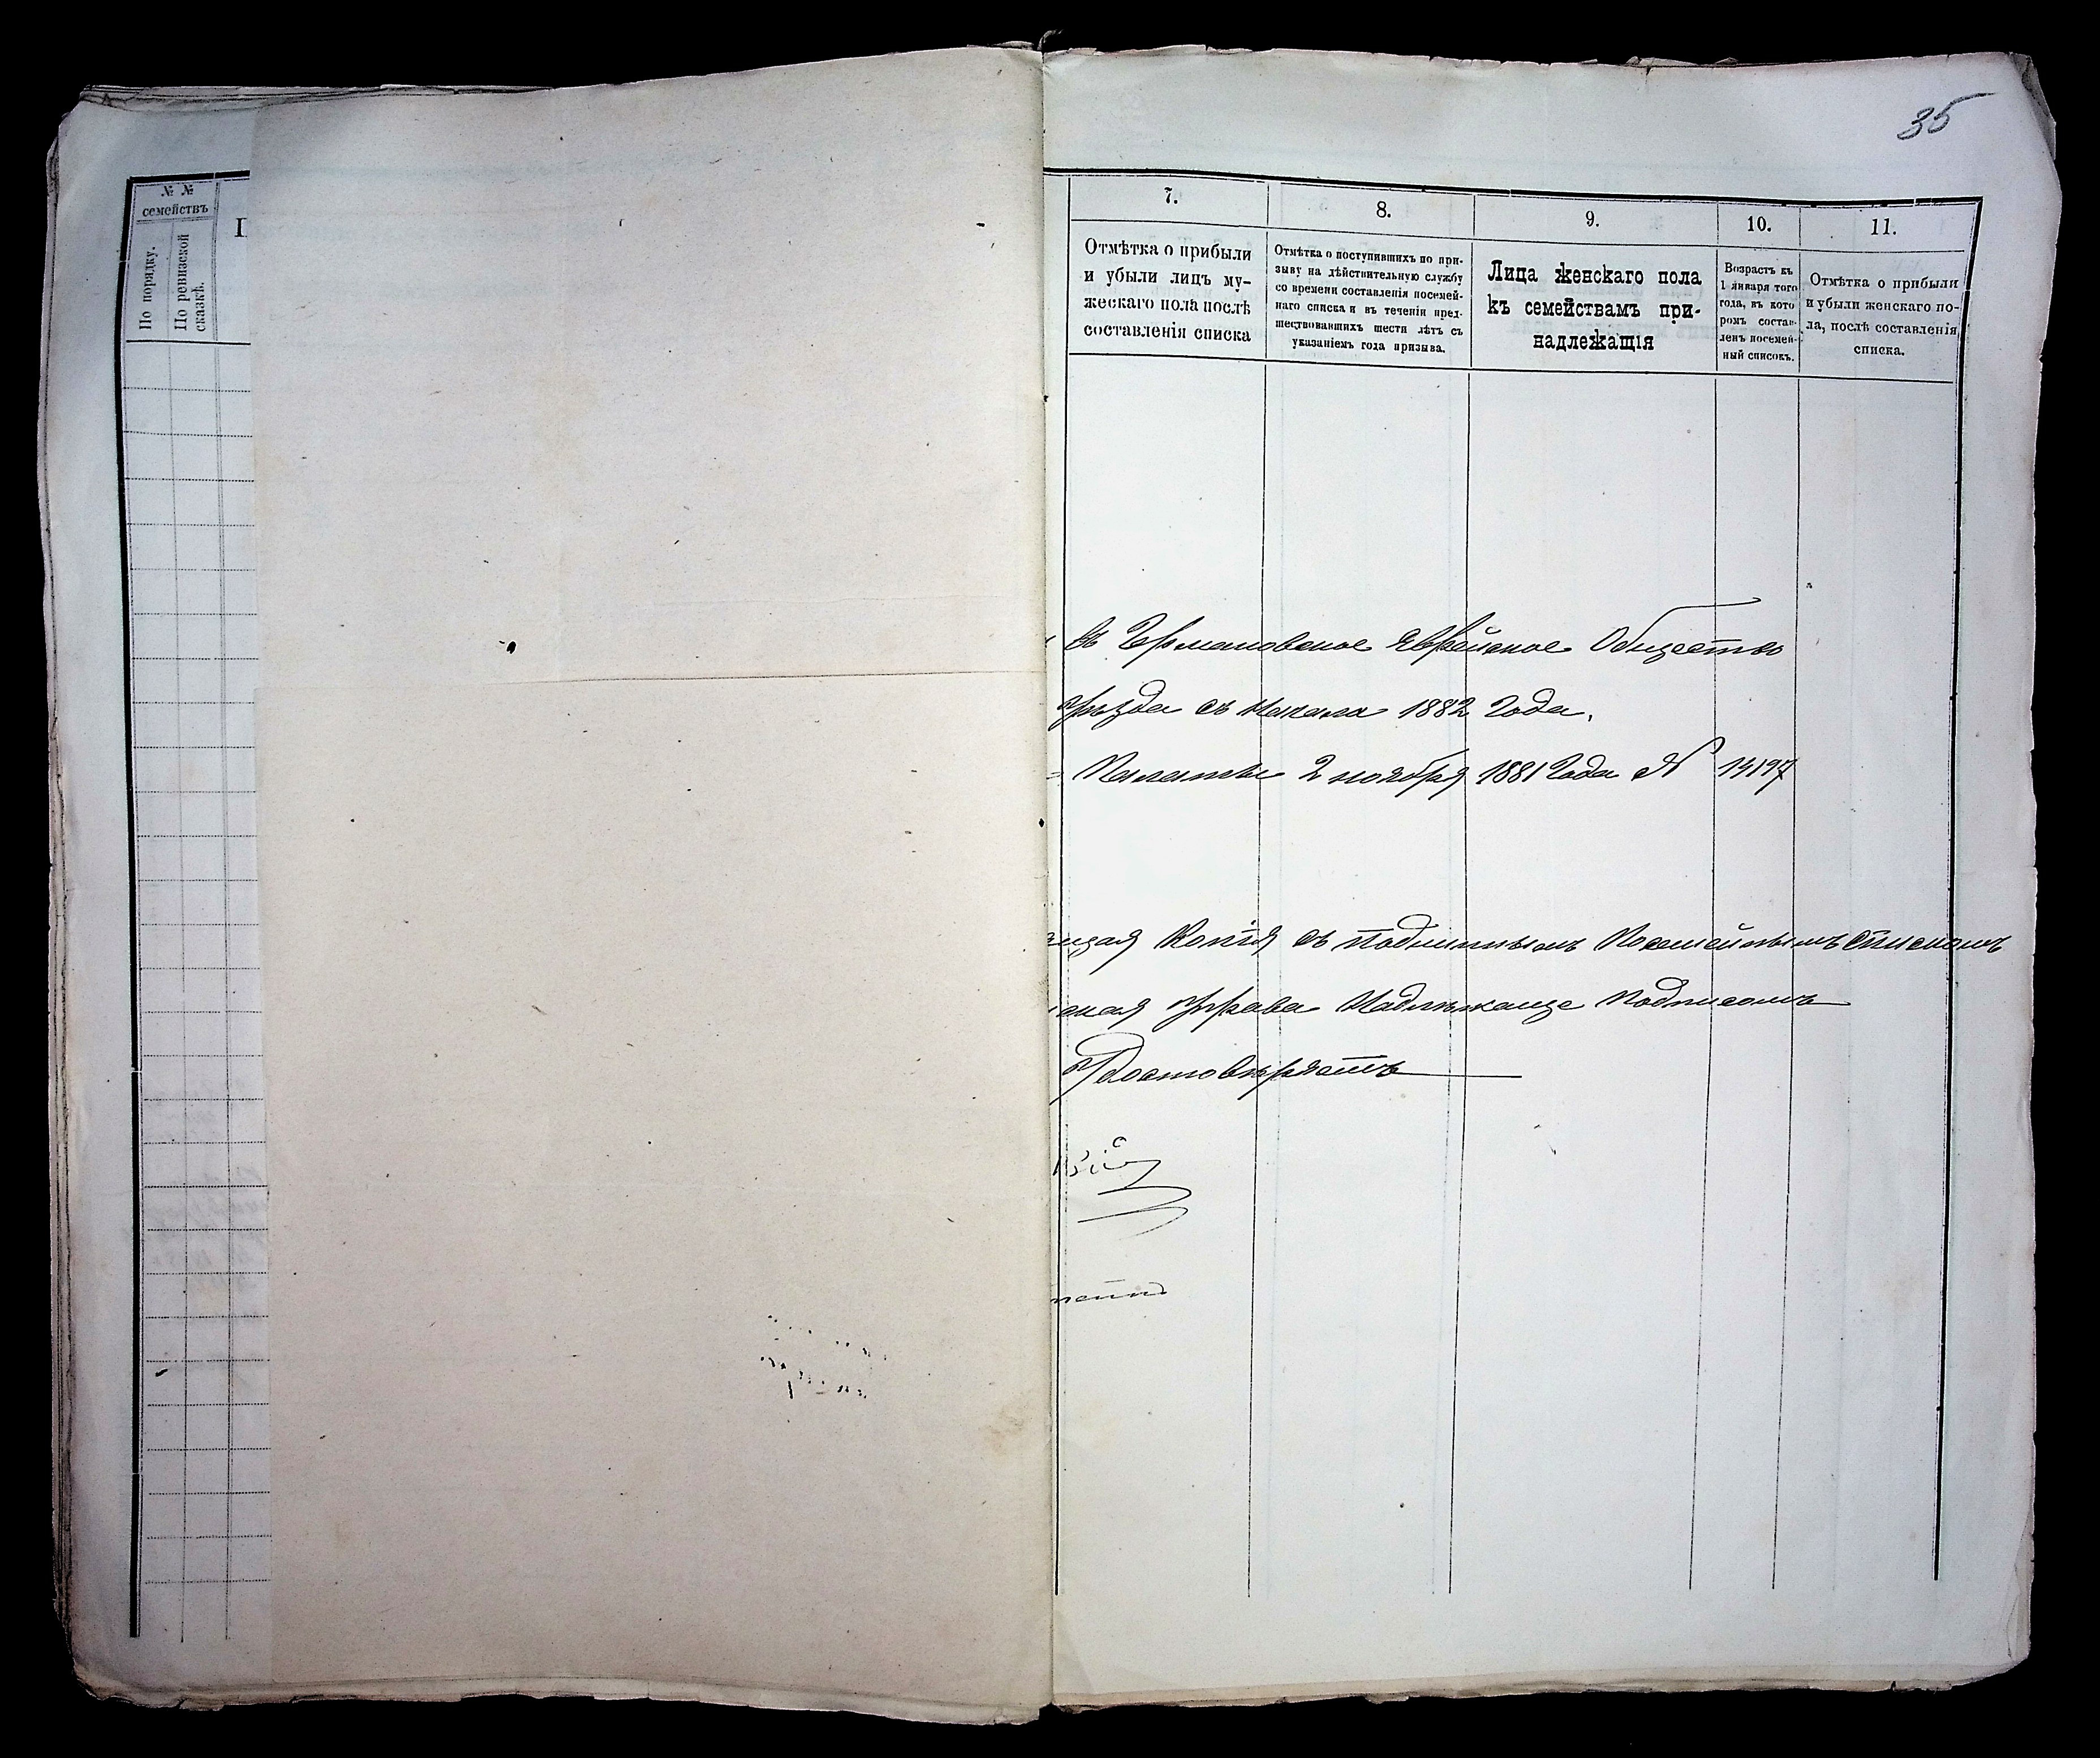 35
№ №
семействъ
По порядку.
По ревизской
сказкѣ.
7.
Отмѣтка о прибыли
и убыли лицъ му-
жескаго пола послѣ
составленія списка
8.
Отмѣтка о поступившихъ по при-
зыву на дѣйствительную службу
со времени составленія посемей-
наго списка и въ теченіи пред-
шествовавшихъ шести лѣтъ съ
указаніемъ года призыва.
9.
Лица женскаго пола
къ семействамъ при-
надлежащія
10.
Возрастъ къ
1 января того
года, въ кото
ромъ состав-
ленъ посемей-
ный списокъ.
11.
Отмѣтка о прибыли
и убыли женскаго по-
ла, послѣ составленія
списка.
въ Германовское Еврейское Общество
уѣзда съ начала 1882 года.
Палаты 2 ноября 1881 года № 14197
щая Копія съ подлиннымъ Посемейнымъ спискомъ
ская управа Надлежаще подписомъ
Удостовѣряетъ